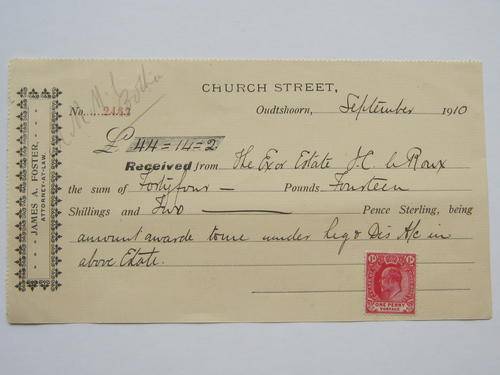 JAMES A. FOSTER,
ATTORNEY-AT-LAW.
CHURCH STREET,
No. 2483
Oudtshoorn, September 1910
£ 44=14=2
Received from The Exor Estate J.H. le Roux
the sum of Fortyfour — Pounds Fourteen
Shillings and Two — Pence Sterling, being
amount awarde to me under Liq & Dis A/c in
above Estate.
1d 1d
ONE PENNY
POSTAGE